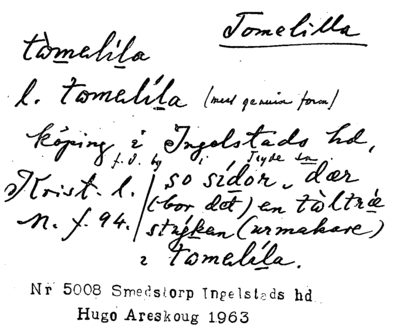 Tomelilla
tòmalíla
l. tomalíla (med genuin form)
köping i Ingelstads hd,
f. d. by i Tryde sn
Krist. l. so sídor, dær
n. f. 94. (bor det) en tòltræ
stýkan (urmakare)
i tomalíla.
Nr 5008 Smedstorp Ingelstads hd
Hugo Areskoug 1963